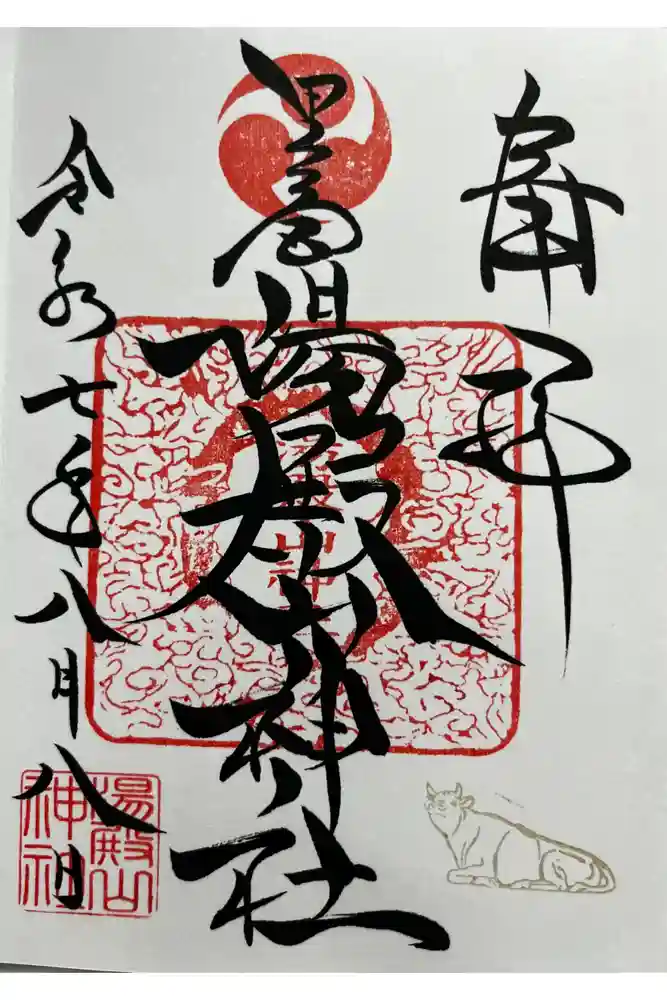 奉拝
里之宮湯殿山神社
令和七年八月八日
湯殿山
神社